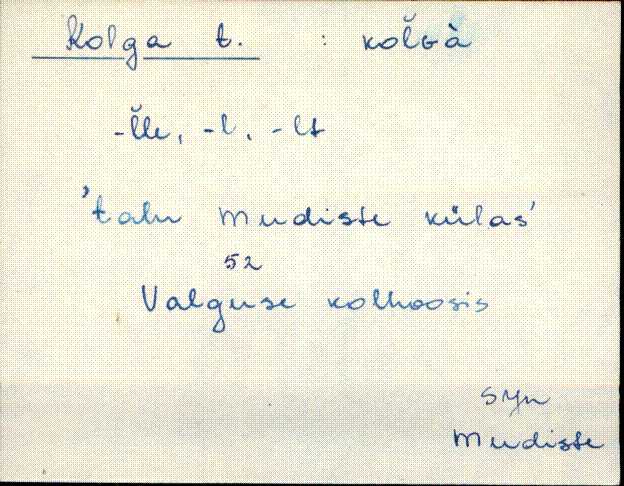 Kolga t. : kol̆ɢà
-l̆le, -l, -lt
'talu Mudiste külas'
52
Valguse kolhoosis
SJn
Mudiste